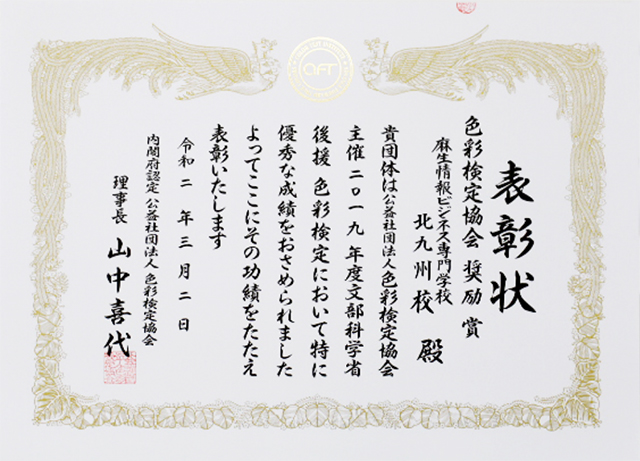 表彰状
色彩検定協会 奨励賞
麻生情報ビジネス専門学校
北九州校 殿
貴団体は公益社団法人色彩検定協会
主催二〇一九年度文部科学省
後援 色彩検定において特に
優秀な成績をおさめられました
よってここにその功績をたたえ
表彰いたします
令和二年三月二日
内閣府認定 公益社団法人 色彩検定協会
理事長 山中喜代
AFT